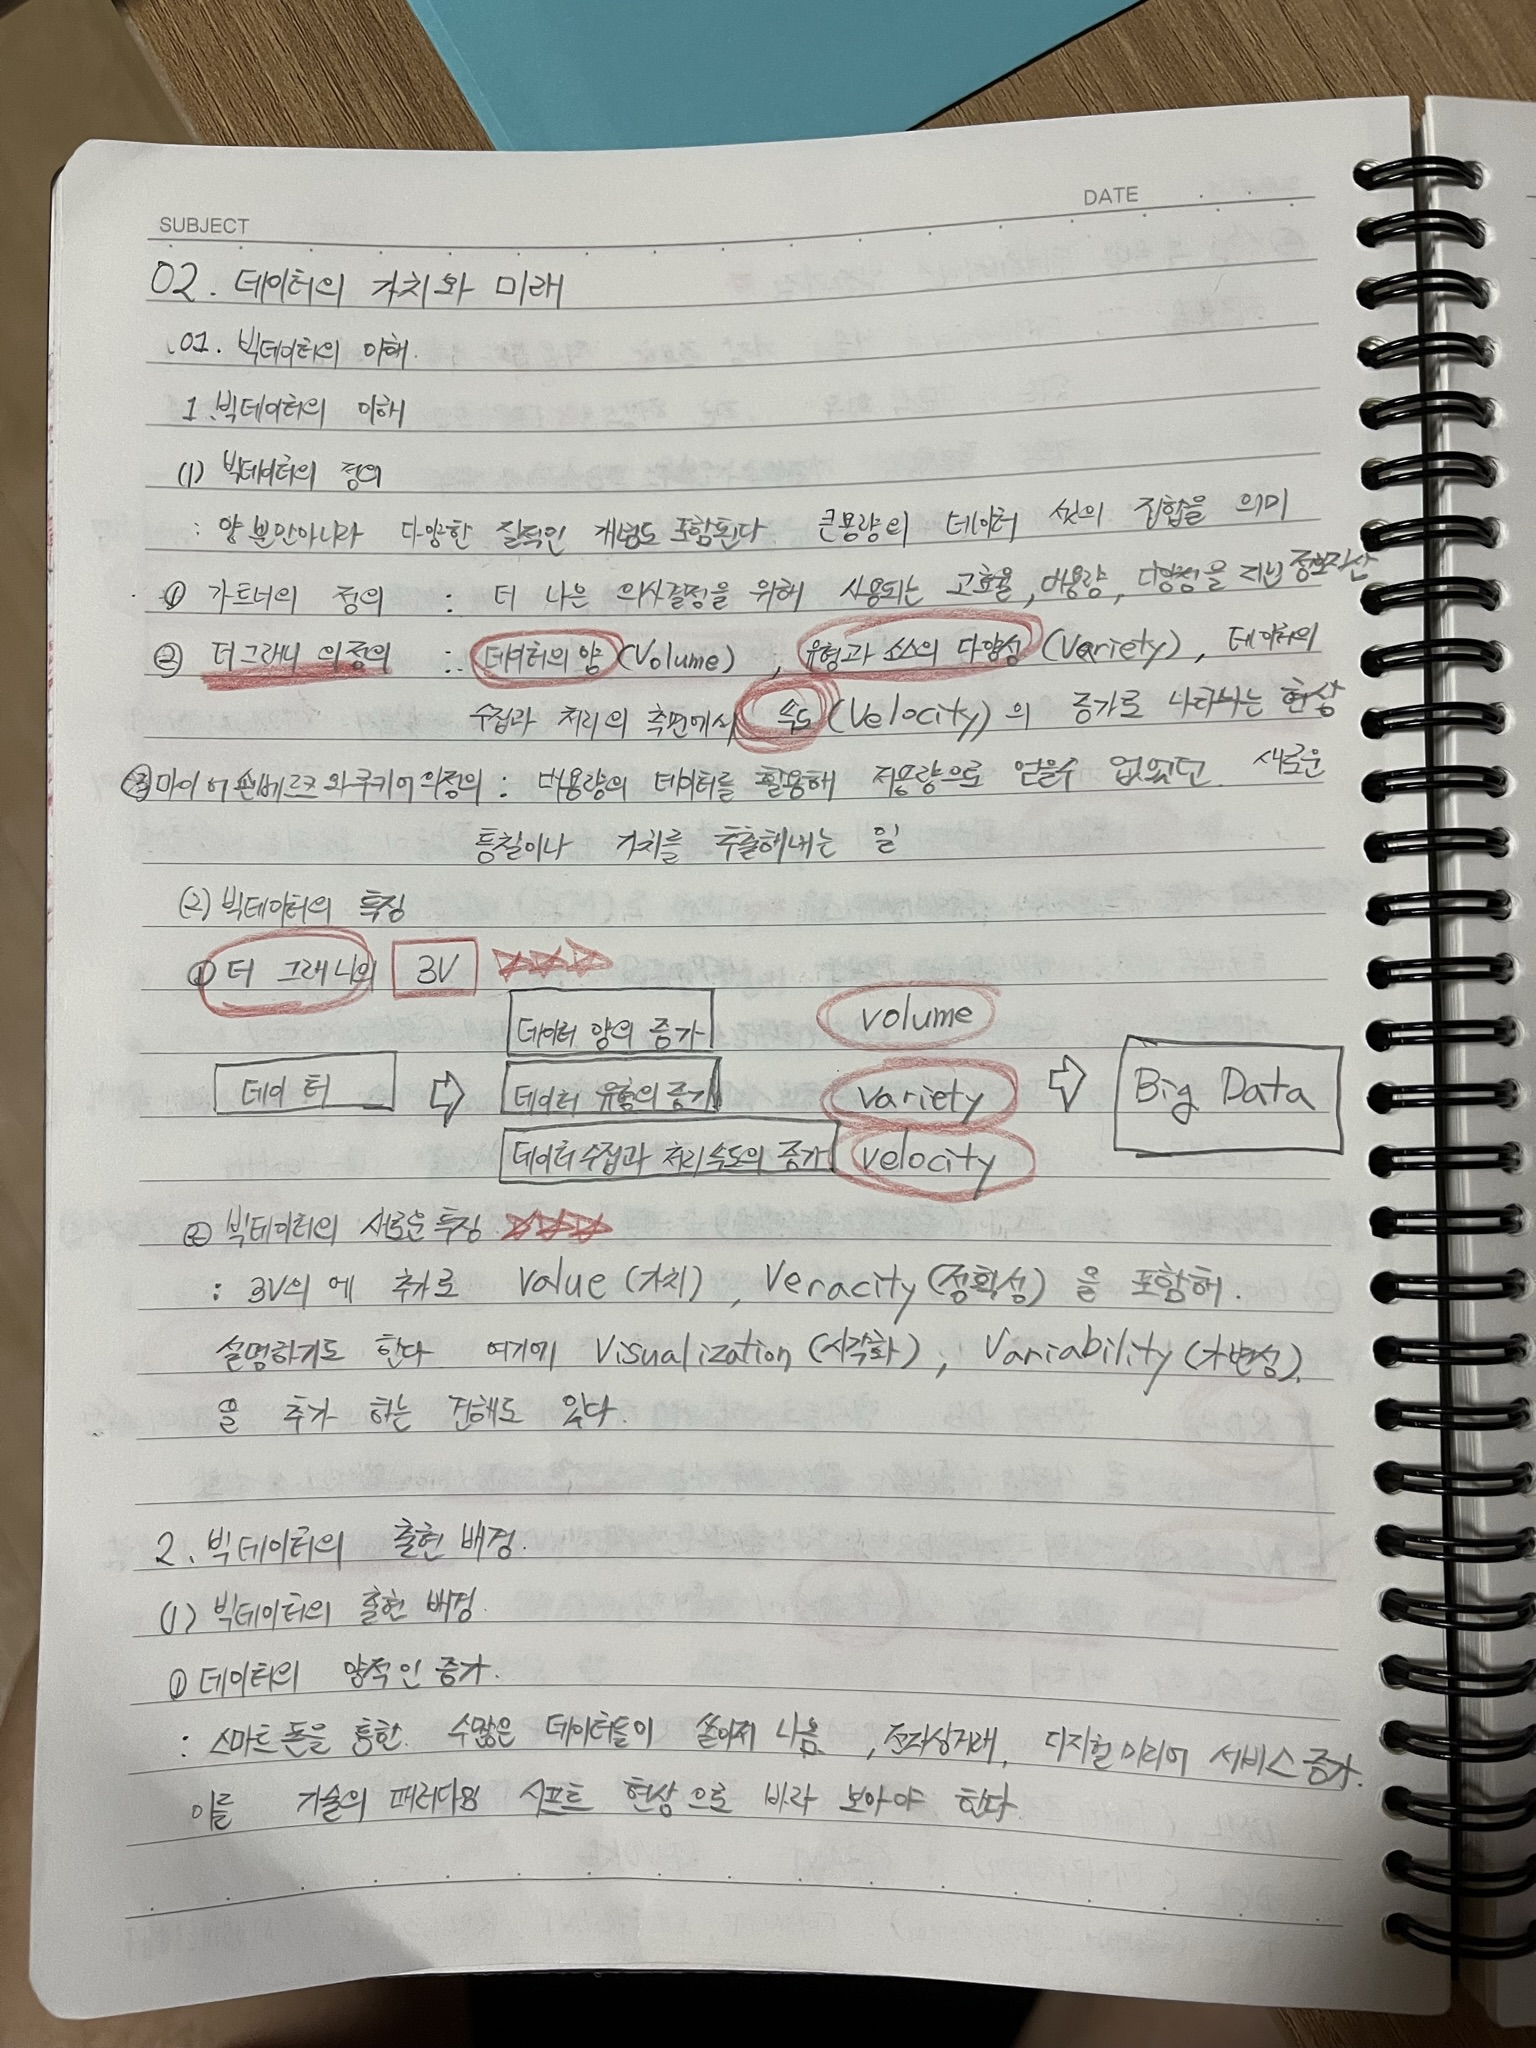 SUBJECT
DATE
02. 데이터의 가치와 미래
01. 빅데이터의 이해.
1. 빅데이터의 이해
(1) 빅데이터의 정의
: 양 뿐만아니라 다양한 질적인 개념도 포함된다 큰용량의 데이터 셋의 집합을 의미
① 가트너의 정의 : 더 나은 의사결정을 위해 사용되는 고효율, 대용량, 다양성을 지닌 정보자산
② 더그래니 의 정의 : 데이터의 양 (Volume), 유형과 소스의 다양성 (Variety), 데이터의
수집과 처리의 측면에서 속도 (Velocity)의 증가로 나타나는 현상
③ 마이어쇤베르크와쿠키어의정의 : 대용량의 데이터를 활용해 저용량으로 얻을수 없었던 새로운
통찰이나 가치를 추출해내는 일
(2) 빅데이터의 특징
① 더 그래니의 3V
데이터 양의 증가 volume
데이터 ⇨ 데이터 유형의 증가 variety ⇨ Big Data
데이터 수집과 처리속도의 증가 velocity
② 빅데이터의 새로운 특징
: 3V의 에 추가로 Value (가치), Veracity (정확성) 을 포함해.
설명하기도 한다 여기에 Visualization (시각화), Variability (가변성).
을 추가 하는 견해도 있다.
2. 빅데이터의 출현 배경.
(1) 빅데이터의 출현 배경.
① 데이터의 양적인 증가.
: 스마트폰을 통한 수많은 데이터들이 쏟아져 나옴, 전자상거래, 디지털미디어 서비스 증가.
이를 기술의 패러다임 시프트 현상으로 바라 보아야 한다.